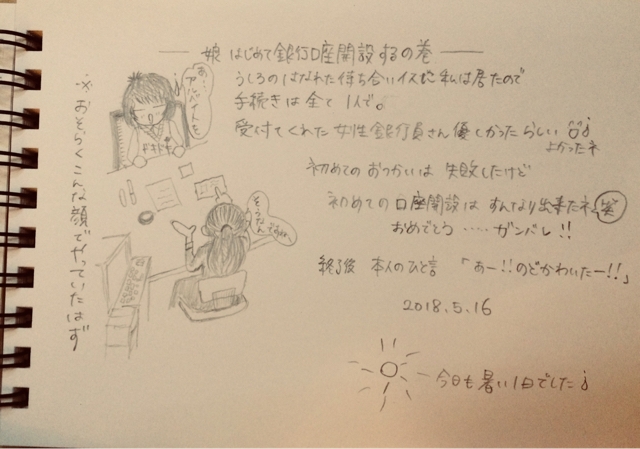 娘 はじめて銀行口座開設するの巻
うしろのはなれた待ち合いイスに私は居たので
手続きは全て1人で。
受付てくれた女性銀行員さん優しかったらしい♪
よかったネ
初めてのおつかいは 失敗したけど
初めての口座開設は すんなり出来たネ 笑
おめでとう ‥‥ ガンバレ!!
終了後 本人のひと言 「あー!!のどかわいたー!!」
2018.5.16
今日も暑い1日でした♪
※おそらくこんな顔でやっていたはず
あ…
アルバイトを
ドキドキ
そうなんですね